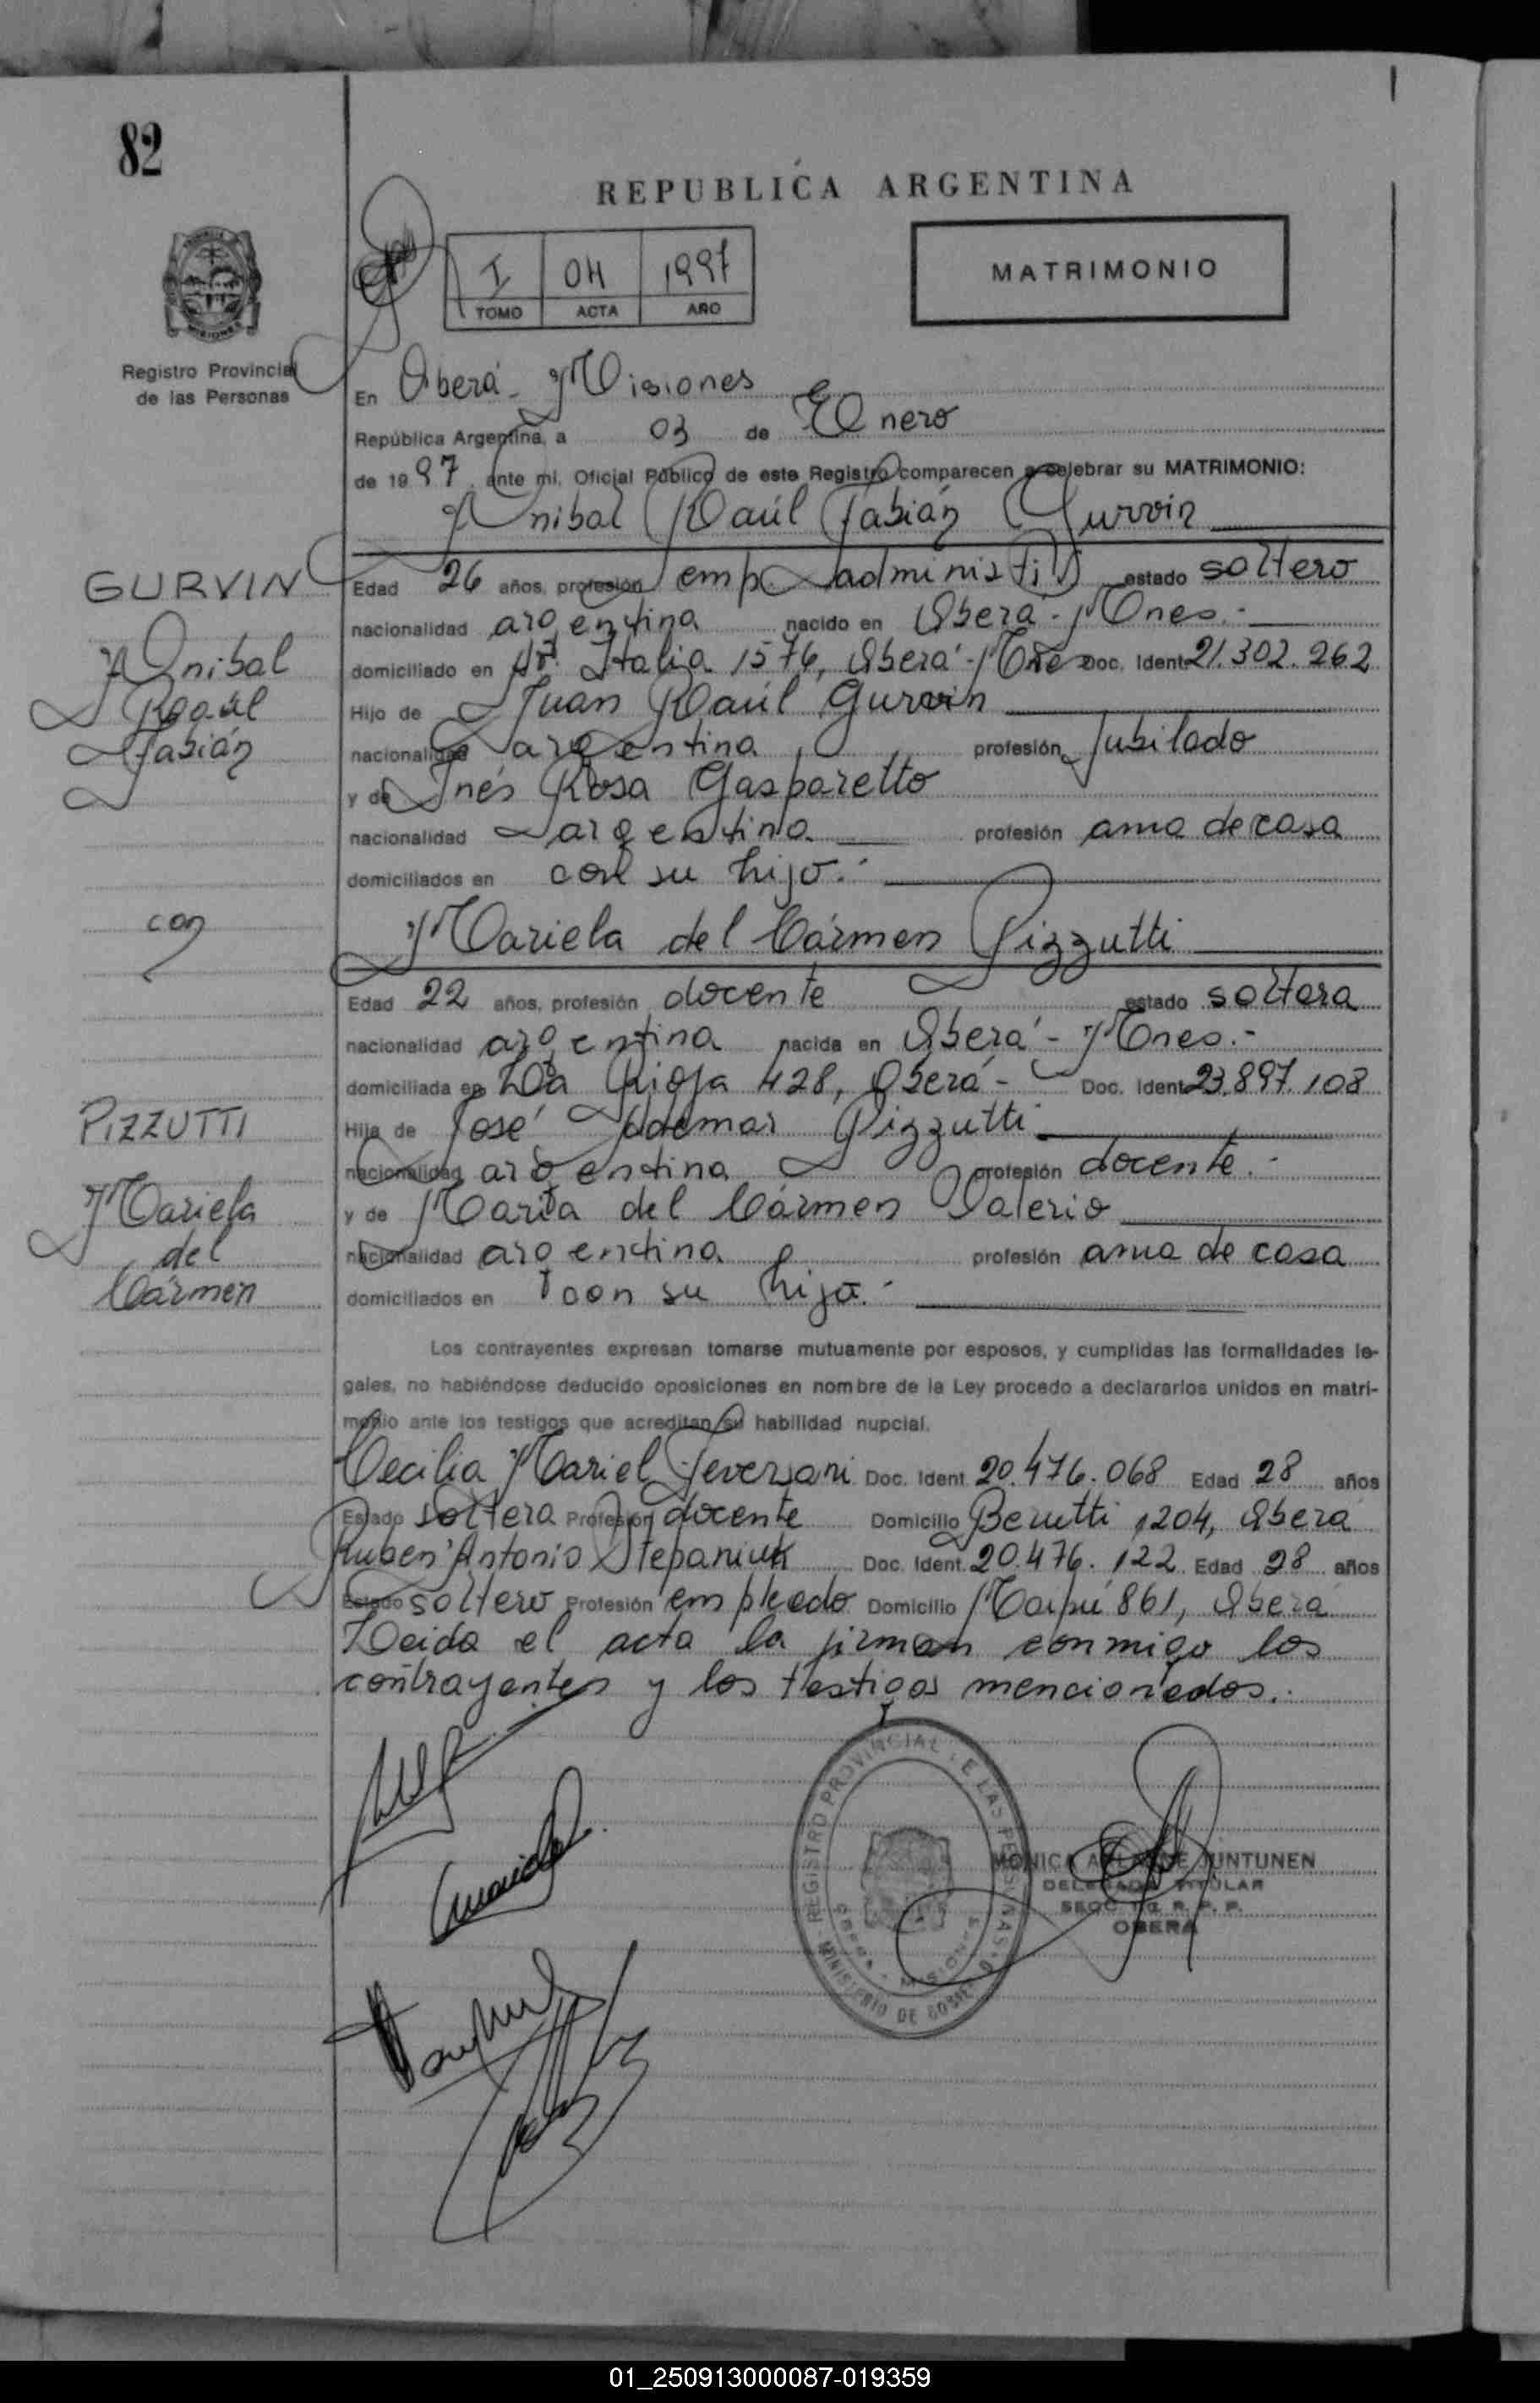 82
REPUBLICA ARGENTINA
I 04 1997
TOMO ACTA AÑO
MATRIMONIO
Registro Provincial
de las Personas
En Oberá - Misiones
República Argentina, a 03 de Enero
de 1997 ante mi, Oficial Público de este Registro comparecen a celebrar su MATRIMONIO:
Anibal Raúl Fabián Gurvin
GURVIN
Anibal
Raúl
Fabián
Edad 26 años, profesión emp. administ. estado soltero
nacionalidad argentina nacido en Oberá - Mnes.-
domiciliado en Av. Italia 1576, Oberá - Mnes Doc. Ident. 21.302.262
Hijo de Juan Raúl Gurvin
nacionalidad argentina profesión Jubilado
y de Inés Rosa Gasparetto
nacionalidad argentina profesión ama de casa
domiciliados en con su hijo.-
con
Mariela del Cármen Pizzutti
Edad 22 años, profesión docente estado soltera
nacionalidad argentina nacida en Oberá - Mnes.-
domiciliada en La Rioja 428, Oberá - Doc. Ident. 23.897.108
PIZZUTTI
Mariela
del
Cármen
Hija de José Ademar Pizzutti
nacionalidad argentina profesión docente.-
y de María del Cármen Valerio
nacionalidad argentina profesión ama de casa
domiciliados en con su hija.-
Los contrayentes expresan tomarse mutuamente por esposos, y cumplidas las formalidades le-
gales, no habiéndose deducido oposiciones en nombre de la Ley procedo a declararlos unidos en matri-
monio ante los testigos que acreditan su habilidad nupcial.
Cecilia Mariel Feversani Doc. Ident. 20.476.068 Edad 28 años
Estado soltera Profesión docente Domicilio Berutti 1204, Oberá
Ruben Antonio Stepaniuk Doc. Ident. 20.476.122 Edad 28 años
Estado soltero Profesión empleado Domicilio Maipú 861, Oberá
Leida el acta la firman conmigo los
contrayentes y los testigos mencionados.-
REGISTRO PROVINCIAL DE LAS PERSONAS
MINISTERIO DE GOBIERNO
OBERA - MISIONES
MONICA DE JUNTUNEN
DELEGADA TITULAR
SECC. R. P. P.
OBERA
01_250913000087-019359